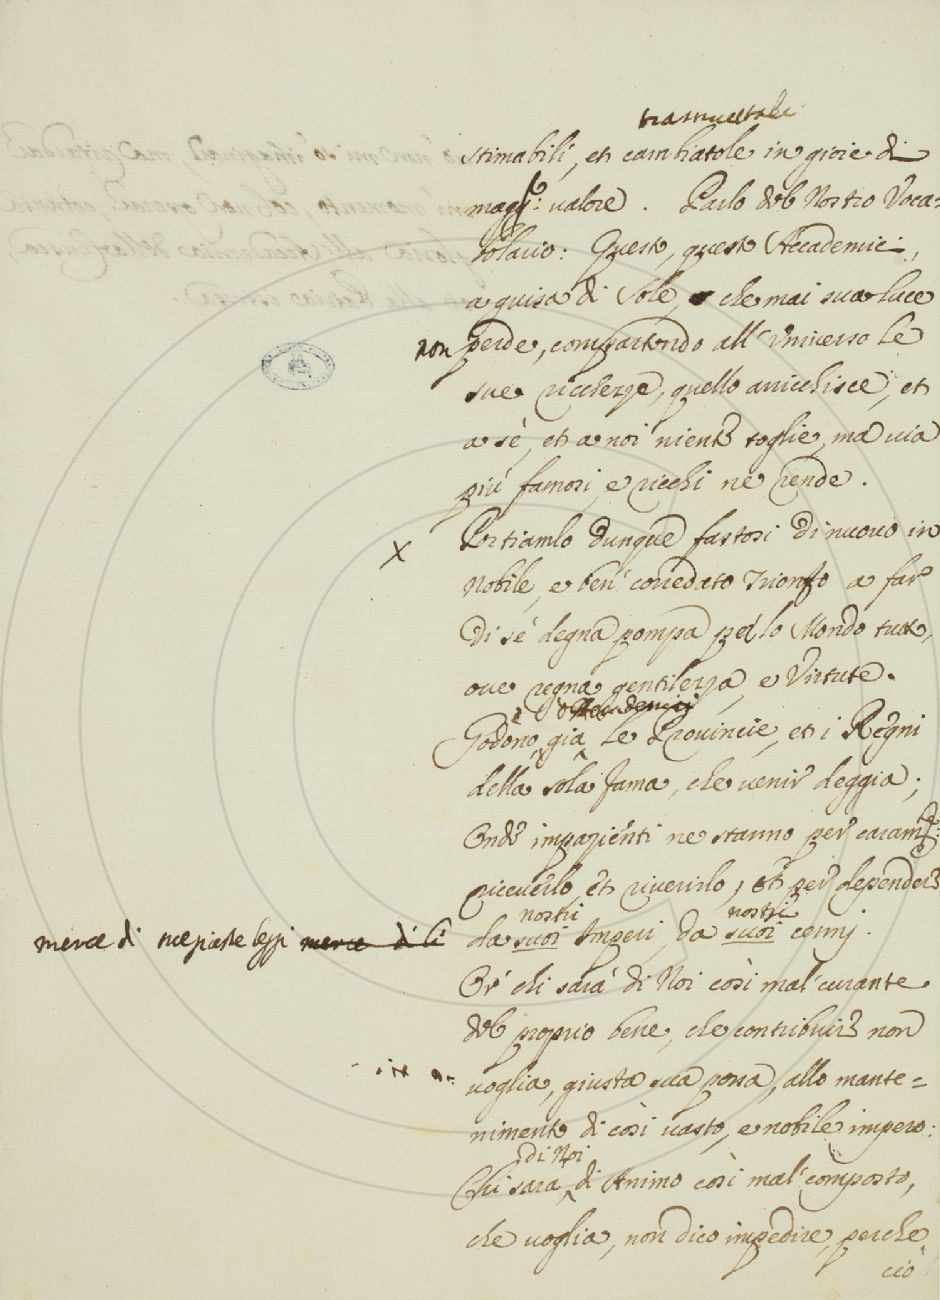 trasmutatele
stimabili, et cambiatole in gioie di
magg:re valore. Parlo del Nostro Voca=
bolario: Questo, questo Accademici,
a guisa di Sole, che mai sua luce
non perde, compartendo all'Universo le
sue ricchezze, quello arricchisce, et
a sè, et a noi niente toglie, ma via
più famosi, e ricchi ne rende.
X Portiamlo dunque fastosi di nuovo in
Nobile, e ben corredato Trionfo a far
di sè degna pompa per lo Mondo tutto,
ove regna gentilezza, e Virtute.
o Accademici
Godono già le Provincie, et i Regni
della sola fama, che venir deggia;
Onde impazienti ne stanno per
riceverlo, et riverirlo, et per dependere
nostri nostri
merce di sì da suoi Imperi, da suoi cenni.
Or chi sarà di Noi così mal curante
del proprio bene, che contribuire non
voglia, giusta sua possa, allo mante=
nimento di così vasto, e nobile impero:
di Noi
Chi sara di Animo così mal composto,
che voglia, non dico impedire, perche
ciò